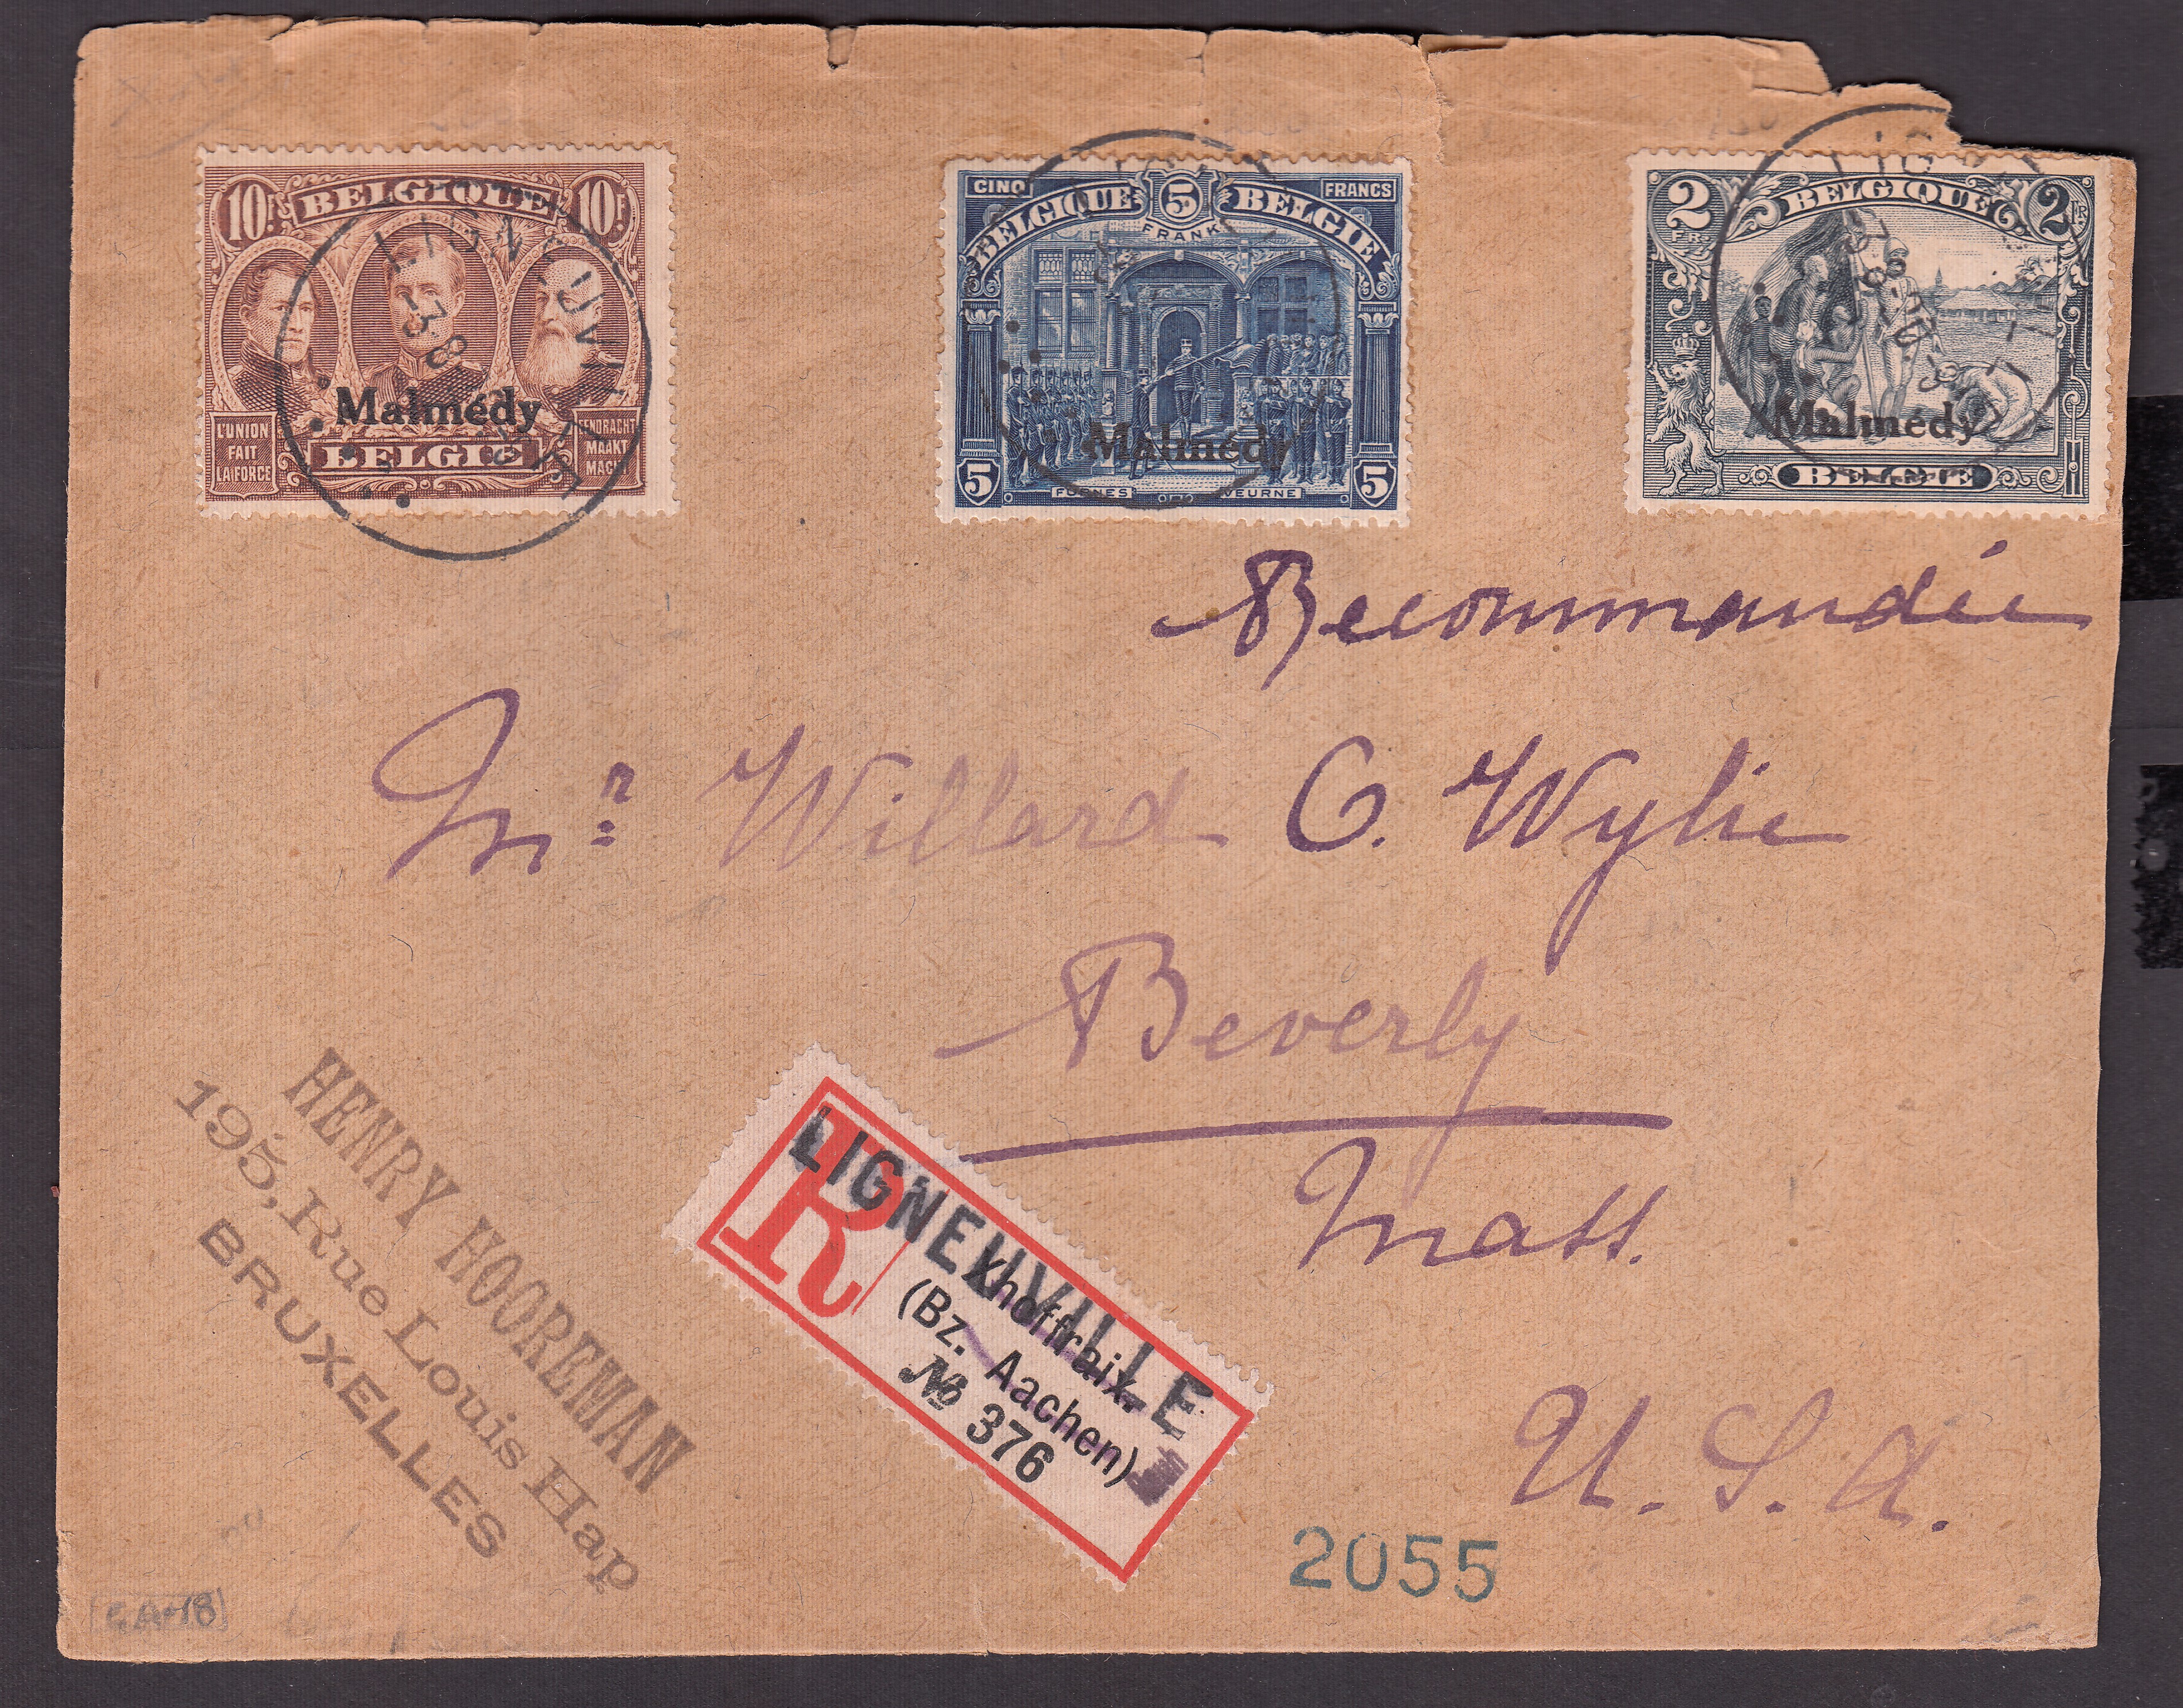 10 F. BELGIQUE 10 F.
L'UNION
FAIT
LA FORCE
Malmédy
BELGIË
EENDRACHT
MAAKT
MACHT
LIGNEUVILLE
CINQ 5 FRANCS
BELGIQUE BELGIË
FRANK
Malmédy
5 5
FURNES VEURNE
2 BELGIQUE 2
FR. FR
Malmédy
BELGIE
Recommandée
Mr Willard C. Wylie
Beverly
Mass.
U.S.A.
HENRY HOOREMAN
195, Rue Louis Hap
BRUXELLES
R
LIGNEUVILLE
Xhoffraix.
(Bz. Aachen)
№ 376
2055